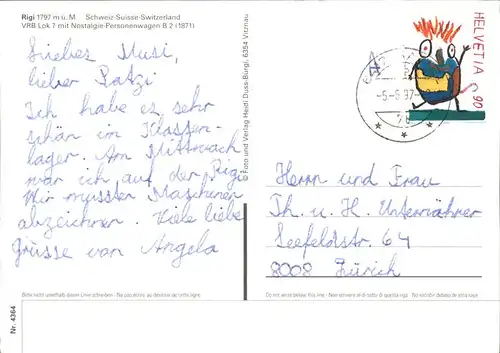 Rigi 1797 m ü. M Schweiz-Suisse-Switzerland
VRB Lok 7 mit Nostalgie-Personenwagen B 2 (1871)
Liebes Musi,
lieber Patzi
Ich habe es sehr
schön im Klassen-
lager. Am Mittwoch
war ich auf der Rigi
Wir mussten Maschinen
abzeichnen. Viele liebe
Grüsse von Angela
Bitte nicht unterhalb dieser Linie schreiben - Ne pas écrire au dessous de cette ligne
Nr. 4364
© Foto und Verlag Heidi Duss-Bürgi, 6354 Vitznau
HELVETIA 90
-5.-6.97-
Herrn und Frau
Th. u. H. Unternährer
Seefeldstr. 64
8008 Zürich
Do not write below this line - Non scrivere al di sotto di questa riga - No escribir debajo de esta raya